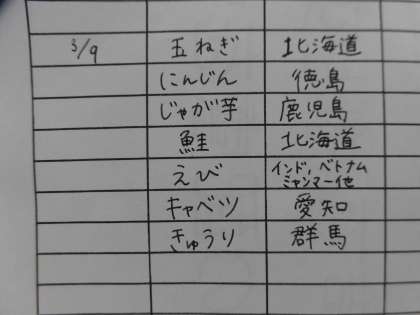 3/9 玉ねぎ 北海道
にんじん 徳島
じゃが芋 鹿児島
鮭 北海道
えび インド、ベトナム
ミャンマー他
キャベツ 愛知
きゅうり 群馬